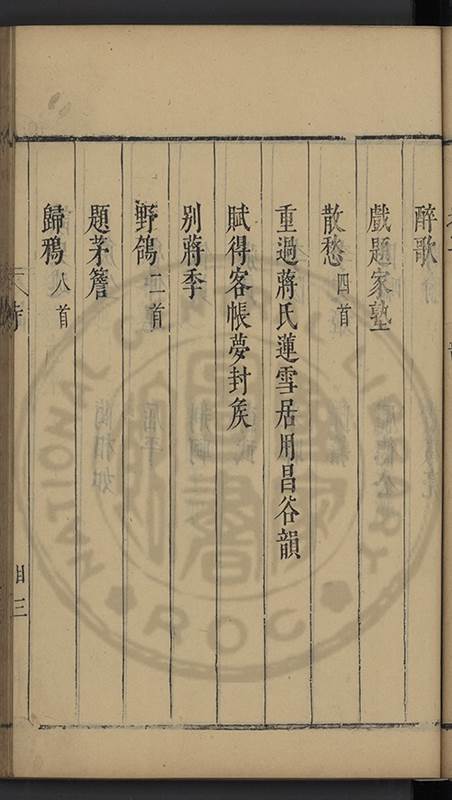 醉歌
戲題家塾
散愁 四首
重過蔣氏蓮雪居用昌谷韻
賦得客帳夢封矦
别蔣季
野鴿 二首
題茅簷
歸鴉 八首